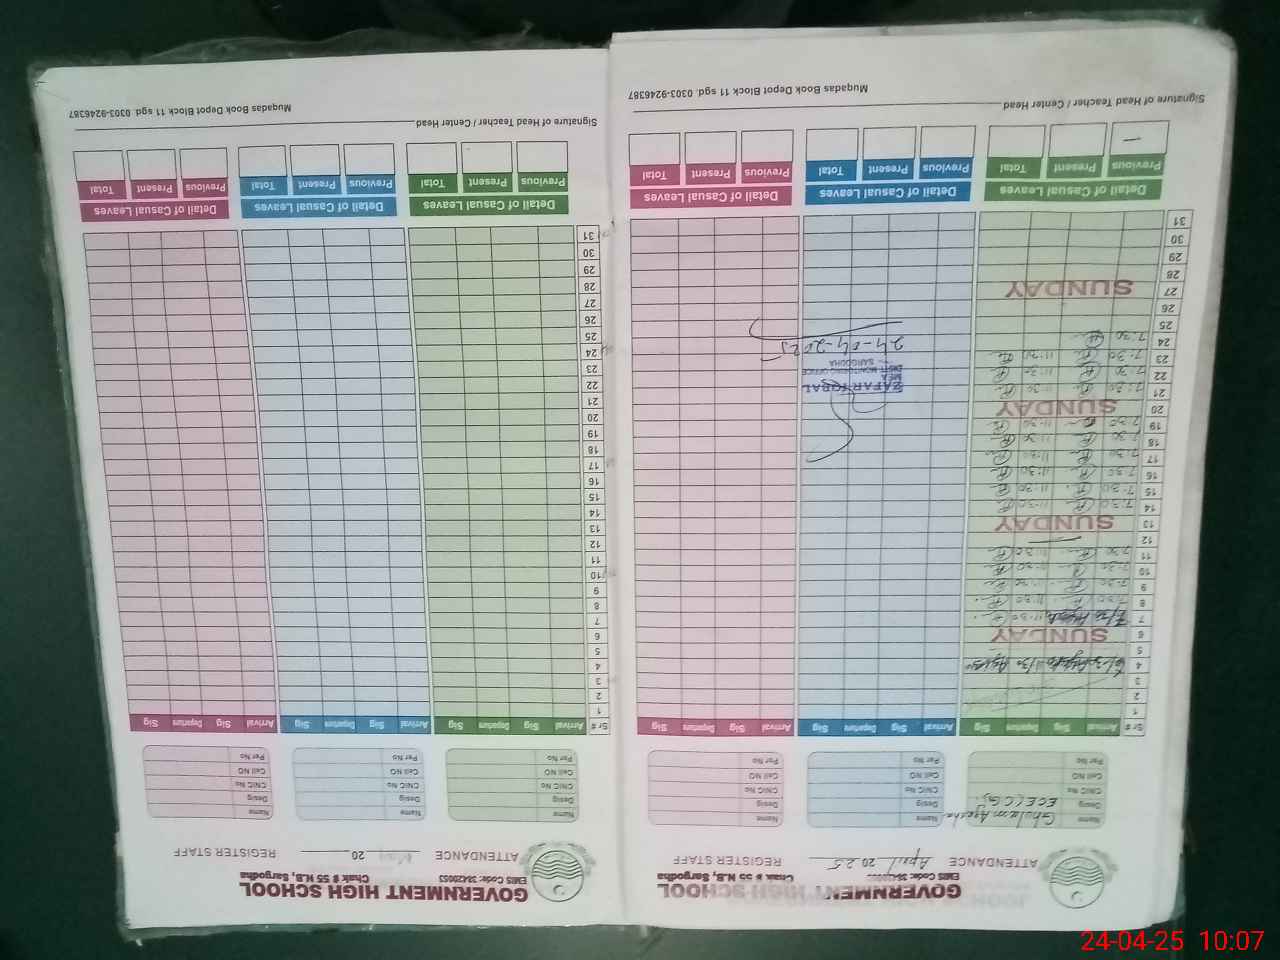 GOVERNMENT HIGH SCHOOL
EMIS Code: 38420053 Chak # 55 N.B, Sargodha
ATTENDANCE April 2025 REGISTER STAFF
Name Ghulam Ayesha Name Name
Desig ECE (C.G) Desig Desig
CNIC No CNIC No CNIC No
Cell NO Cell NO Cell NO
Per No Per No Per No
Sr # Arrival Sig Departure Sig Arrival Sig Departure Sig Arrival Sig Departure Sig
1
2
3
4
5
6 SUNDAY
7 7/30 11:30
8 7:30 11:30
9 7:30 11:30
10 7:30 11:30
11 7:30 11:30
12
13 SUNDAY
14 7:30 11:30
15 7:30 11:30
16 7:30 11:30
17 7:30 11:30
18 7:30 11:30
19 7:30 11:30
20 SUNDAY
21 7:30 11:30
22 7:30 11:30
23 7:30 11:30
24 7:30
25
26
27 SUNDAY
28
29
30
31
ZAFAR IQBAL
MEA
DISTT MONITORING OFFICE
SARGODHA
24-04-2025
Detail of Casual Leaves Detail of Casual Leaves Detail of Casual Leaves
Previous Present Total Previous Present Total Previous Present Total
Signature of Head Teacher / Center Head
Muqadas Book Depot Block 11 sgd. 0303-9246387
GOVERNMENT HIGH SCHOOL
EMIS Code: 38420053 Chak # 55 N.B, Sargodha
ATTENDANCE May 20 REGISTER STAFF
Name Name Name
Desig Desig Desig
CNIC No CNIC No CNIC No
Cell NO Cell NO Cell NO
Per No Per No Per No
Sr # Arrival Sig Departure Sig Arrival Sig Departure Sig Arrival Sig Departure Sig
1
2
3
4
5
6
7
8
9
10
11
12
13
14
15
16
17
18
19
20
21
22
23
24
25
26
27
28
29
30
31
Detail of Casual Leaves Detail of Casual Leaves Detail of Casual Leaves
Previous Present Total Previous Present Total Previous Present Total
Signature of Head Teacher / Center Head
Muqadas Book Depot Block 11 sgd. 0303-9246387
24-04-25 10:07